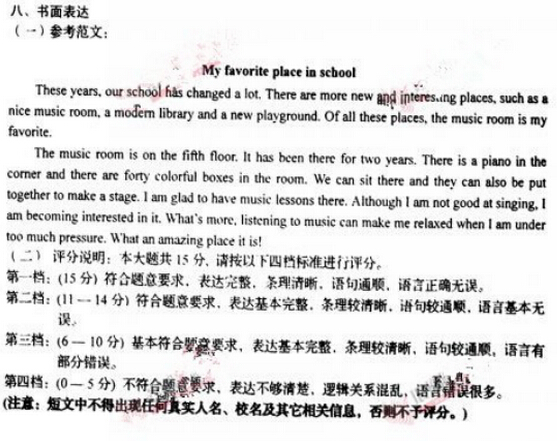 八、书面表达
（一）参考范文：
My favorite place in school
These years, our school has changed a lot. There are more new and interesting places, such as a
nice music room, a modern library and a new playground. Of all these places, the music room is my
favorite.
The music room is on the fifth floor. It has been there for two years. There is a piano in the
corner and there are forty colorful boxes in the room. We can sit there and they can also be put
together to make a stage. I am glad to have music lessons there. Although I am not good at singing, I
am becoming interested in it. What's more, listening to music can make me relaxed when I am under
too much pressure. What an amazing place it is!
（二）评分说明：本大题共 15 分，请按以下四档标准进行评分。
第一档：(15 分) 符合题意要求，表达完整，条理清晰，语句通顺，语言正确无误。
第二档：(11－14 分) 符合题意要求，表达基本完整，条理较清晰，语句较通顺，语言基本无
误。
第三档：(6－10 分) 基本符合题意要求，表达基本完整，条理较清晰，语句较通顺，语言有
部分错误。
第四档：(0－5 分) 不符合题意要求，表达不够清楚，逻辑关系混乱，语言错误很多。
(注意：短文中不得出现任何真实人名、校名及其它相关信息，否则不予评分。)